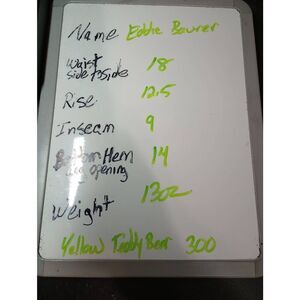 Name Eddie Baurer
Waist
side to side 18
Rise 12.5
Inseam 9
Bottom Hem 14
Leg opening
Weight 13oz
Yellow Teddy Bear 300